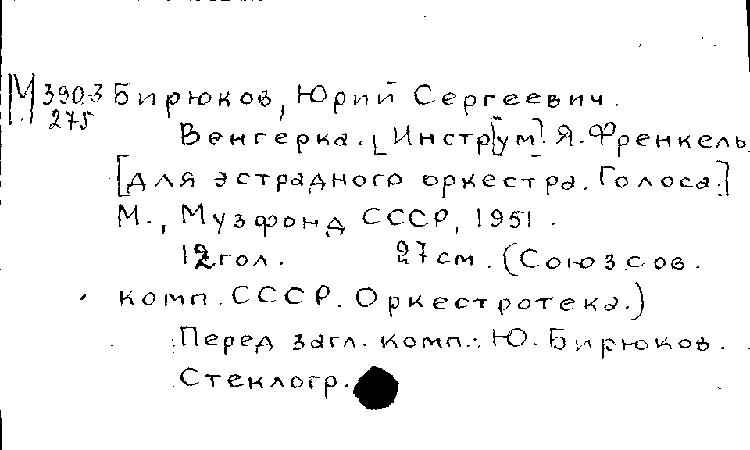 М 390-3 Бирюков, Юрий Сергеевич.
275
Венгерка. [Инстр[ум]. Я. Френкель
[для эстрадного оркестра. Голоса.]
М., Музфонд СССР, 1951.
12 гол. 27 см. (Союз сов.
комп. СССР. Оркестротека.)
Перед загл. комп.: Ю. Бирюков.
Стеклогр.